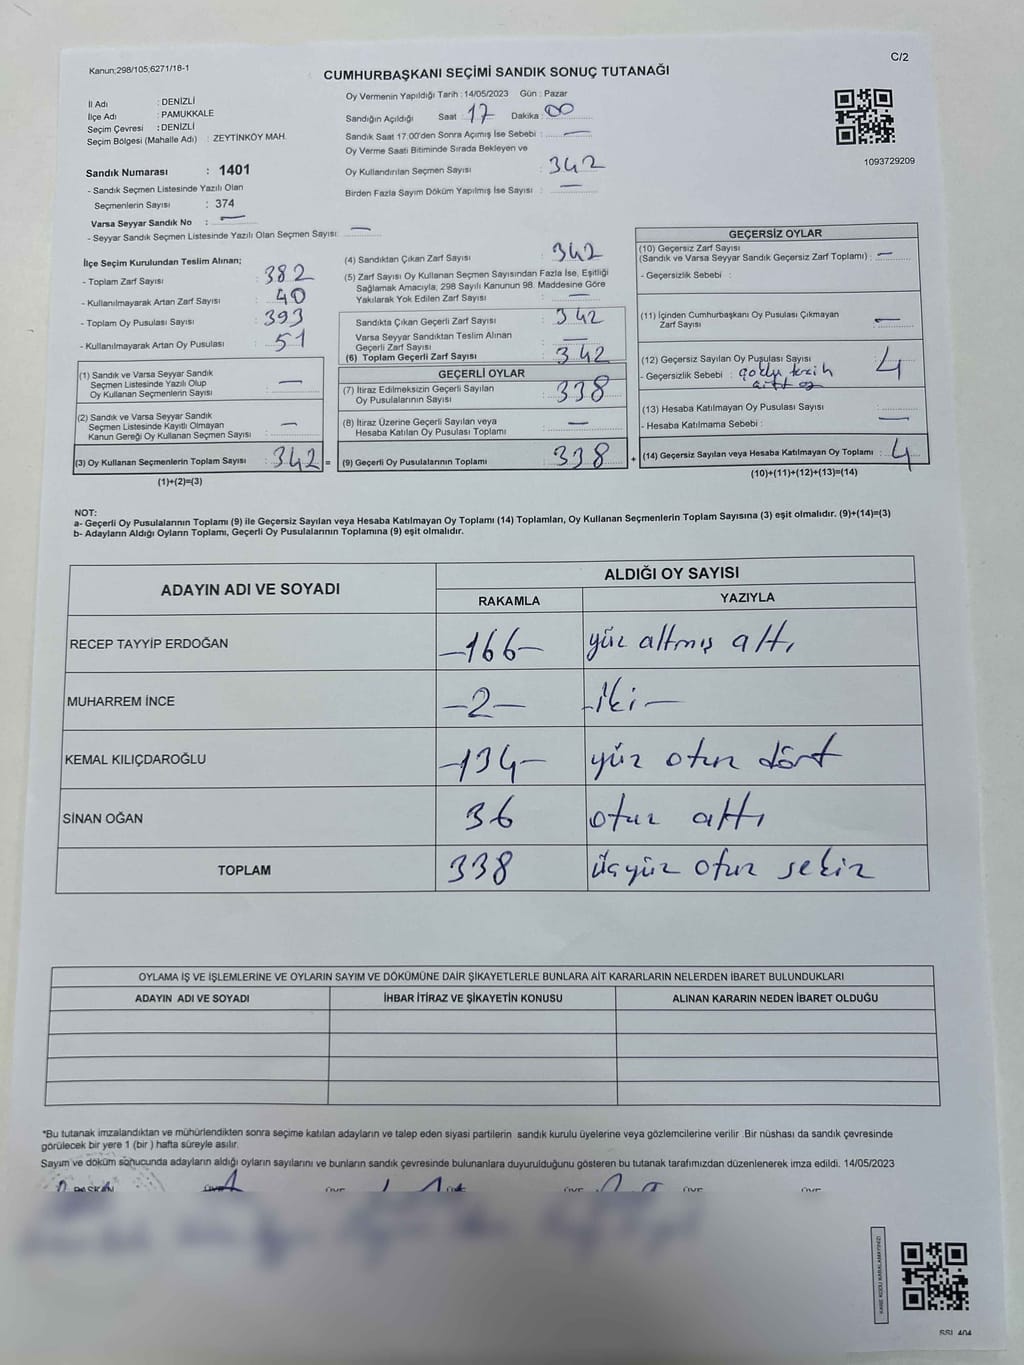 Kanun;298/105;6271/18-1
C/2
CUMHURBAŞKANI SEÇİMİ SANDIK SONUÇ TUTANAĞI
İl Adı : DENİZLİ
İlçe Adı : PAMUKKALE
Seçim Çevresi : DENİZLİ
Seçim Bölgesi (Mahalle Adı) : ZEYTİNKÖY MAH.
Sandık Numarası : 1401
- Sandık Seçmen Listesinde Yazılı Olan
Seçmenlerin Sayısı : 374
Varsa Seyyar Sandık No : —
- Seyyar Sandık Seçmen Listesinde Yazılı Olan Seçmen Sayısı: —
Oy Vermenin Yapıldığı Tarih : 14/05/2023 Gün : Pazar
Sandığın Açıldığı Saat : 17 Dakika : 00
Sandık Saat 17.00'den Sonra Açımış İse Sebebi : —
Oy Verme Saati Bitiminde Sırada Bekleyen ve
Oy Kullandırılan Seçmen Sayısı : 342
Birden Fazla Sayım Döküm Yapılmış İse Sayısı : —
1093729209
İlçe Seçim Kurulundan Teslim Alınan;
- Toplam Zarf Sayısı : 382
- Kullanılmayarak Artan Zarf Sayısı : 40
- Toplam Oy Pusulası Sayısı : 393
- Kullanılmayarak Artan Oy Pusulası : 51
(1) Sandık ve Varsa Seyyar Sandık
Seçmen Listesinde Yazılı Olup
Oy Kullanan Seçmenlerin Sayısı : —
(2) Sandık ve Varsa Seyyar Sandık
Seçmen Listesinde Kayıtlı Olmayan
Kanun Gereği Oy Kullanan Seçmen Sayısı : —
(3) Oy Kullanan Seçmenlerin Toplam Sayısı : 342 =
(1)+(2)=(3)
(4) Sandıktan Çıkan Zarf Sayısı : 342
(5) Zarf Sayısı Oy Kullanan Seçmen Sayısından Fazla İse, Eşitliği
Sağlamak Amacıyla, 298 Sayılı Kanunun 98. Maddesine Göre
Yakılarak Yok Edilen Zarf Sayısı : —
Sandıkta Çıkan Geçerli Zarf Sayısı : 342
Varsa Seyyar Sandıktan Teslim Alınan
Geçerli Zarf Sayısı : —
(6) Toplam Geçerli Zarf Sayısı : 342
GEÇERLİ OYLAR
(7) İtiraz Edilmeksizin Geçerli Sayılan
Oy Pusulalarının Sayısı : 338
(8) İtiraz Üzerine Geçerli Sayılan veya
Hesaba Katılan Oy Pusulası Toplamı : —
(9) Geçerli Oy Pusulalarının Toplamı : 338 +
GEÇERSİZ OYLAR
(10) Geçersiz Zarf Sayısı
(Sandık ve Varsa Seyyar Sandık Geçersiz Zarf Toplamı) : —
- Geçersizlik Sebebi :
(11) İçinden Cumhurbaşkanı Oy Pusulası Çıkmayan
Zarf Sayısı : —
(12) Geçersiz Sayılan Oy Pusulası Sayısı : 4
- Geçersizlik Sebebi : çoklu tercih
(13) Hesaba Katılmayan Oy Pusulası Sayısı :
- Hesaba Katılmama Sebebi : —
(14) Geçersiz Sayılan veya Hesaba Katılmayan Oy Toplamı : 4
(10)+(11)+(12)+(13)=(14)
NOT:
a- Geçerli Oy Pusulalarının Toplamı (9) ile Geçersiz Sayılan veya Hesaba Katılmayan Oy Toplamı (14) Toplamları, Oy Kullanan Seçmenlerin Toplam Sayısına (3) eşit olmalıdır. (9)+(14)=(3)
b- Adayların Aldığı Oyların Toplamı, Geçerli Oy Pusulalarının Toplamına (9) eşit olmalıdır.
ADAYIN ADI VE SOYADI
ALDIĞI OY SAYISI
RAKAMLA YAZIYLA
RECEP TAYYİP ERDOĞAN -166- yüz altmış altı
MUHARREM İNCE -2- -iki-
KEMAL KILIÇDAROĞLU -134- yüz otuz dört
SİNAN OĞAN 36 otuz altı
TOPLAM 338 üçyüz otuz sekiz
OYLAMA İŞ VE İŞLEMLERİNE VE OYLARIN SAYIM VE DÖKÜMÜNE DAİR ŞİKAYETLERLE BUNLARA AİT KARARLARIN NELERDEN İBARET BULUNDUKLARI
ADAYIN ADI VE SOYADI İHBAR İTİRAZ VE ŞİKAYETİN KONUSU ALINAN KARARIN NEDEN İBARET OLDUĞU
*Bu tutanak imzalandıktan ve mühürlendikten sonra seçime katılan adayların ve talep eden siyasi partilerin sandık kurulu üyelerine veya gözlemcilerine verilir .Bir nüshası da sandık çevresinde
görülecek bir yere 1 (bir ) hafta süreyle asılır.
Sayım ve döküm sonucunda adayların aldığı oyların sayılarını ve bunların sandık çevresinde bulunanlara duyurulduğunu gösteren bu tutanak tarafımızdan düzenlenerek imza edildi. 14/05/2023